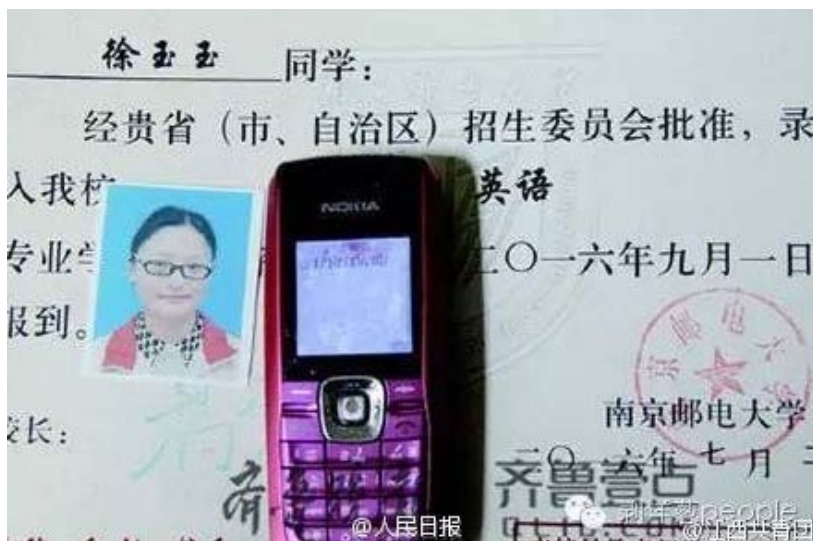 徐玉玉 同学：
经贵省（市、自治区）招生委员会批准，录
入我校 英语
专业学 二〇一六年九月一日
报到。
NOKIA
校长：
南京邮电大学
二〇一六年七月二
齐鲁壹点
@人民日报
@江西共青团